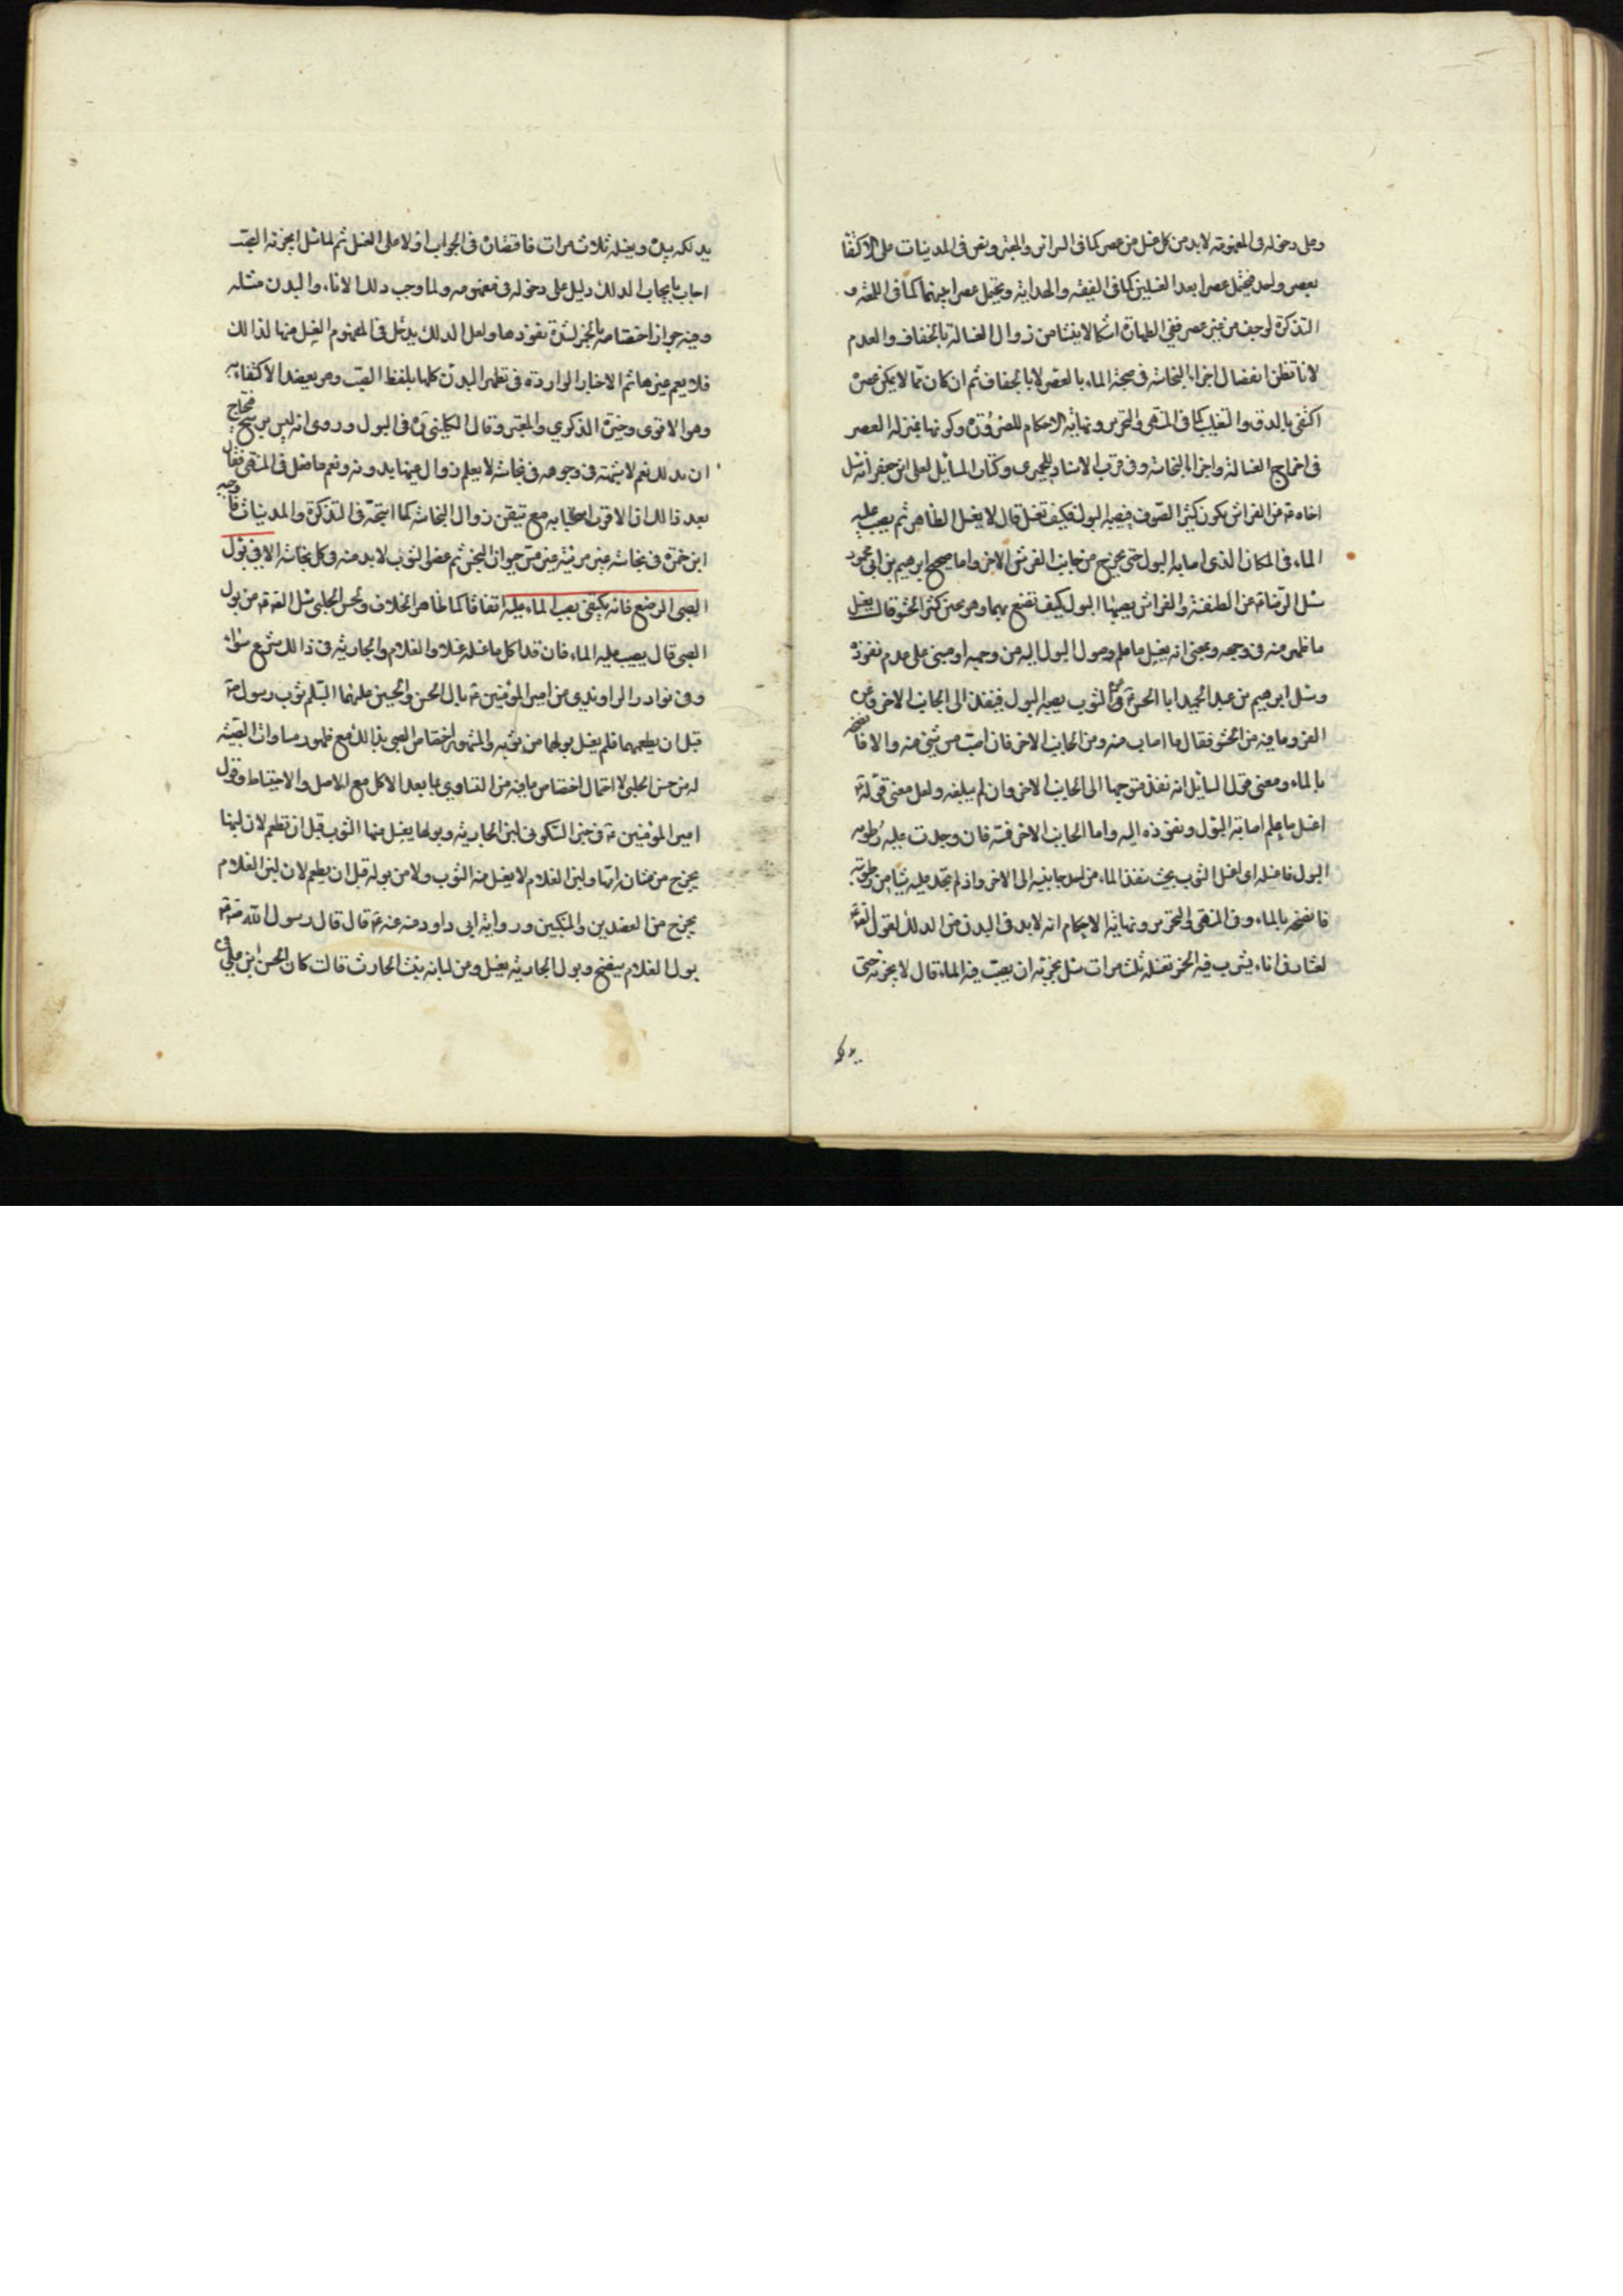 وعلى دخوله في المفهوم لابد من كل غسل من عصر كما في السرائر والمعتبر ونص في المدنيات على الاكتفاء
بعصر واحد فيحتمل عصرا بعد الغسلين كما في الفقيه والهداية ويحتمل عصرا بينهما كما في اللمعة و
التذكرة لو جف من غير عصر ففي الطهارة اشكال ينشأ من زوال الغسالة بالجفاف والعدم
لانا نظن انفصال اجزاء النجاسة في صحبة الماء بالعصر لا بالجفاف ثم ان كان مما لا يمكن عصره
اكتفى بالدق والتغليب كما في المنتهى والتحرير ونهاية الاحكام للضرورة وكونها بمنزلة العصر
في اخراج الغسالة واجزاء النجاسة وفي قرب الاسناد للحميري وكتاب المسائل لعلي ابن جعفر انه سئل
اخاه عن الفراش يكون كثير الصوف فيصيبه البول فكيف تغسل قال لا يغسل الظاهر ثم يصب عليه
الماء في المكان الذي اصابه البول حتى يخرج من جانب الفرش الاخر واما صحيح ابرهيم بن ابي محمود
سئل الرضا عن الطنفسة والفراش يصيبهما البول كيف تصنع بهما وهو ثخين كثير الحشو قال يغسل
ما ظهر منه في وجهه وبمعنى انه يغسل ما علم وصول البول اليه من وجهه او مبني على عدم نفوذه
وسئل ابرهيم بن عبد الحميد ابا الحسن عن الثوب يصيبه البول فينفذ الى الجانب الاخر وعن
الفرو وما فيه من الحشو فقال ما اصاب منه ومن الجانب الاخر فان اصبت مس شيء منه والا فانضحه
بالماء ومعنى قول السائل انه نفذ متوجها الى الجانب الاخر وان لم يبلغه ولعل معنى قوله
اغسل ما علم اصابة البول ونفوذه اليه واما الجانب الاخر فمسه فان وجدت عليه رطوبة
البول فاغسله اي اغسل الثوب بحيث ينفذ الماء من احد جانبيه الى الاخر واذ لم تجد عليه شيئا من رطوبته
فانضحه بالماء وفي المنتهى والتحرير ونهاية الاحكام انه لابد في البدن من الدلك لقول
لعمار في اناء يشرب فيه الخمر تغسله ثلث مرات سئل يجزيه ان يصب فيه الماء قال لا يجزيه حتى
يدلكه بيده ويغسله ثلاث مرات فاقتصاره في الجواب اولا على الغسل ثم لما سئل ايجزئه الصب
اجاب بايجاب الدلك دليل على دخوله في مفهومه ولما وجب دلك الاناء والبدن مثله
وفيه جواز اختصاصه بالخمر لشدة نفوذها ولعل الدلك يدخل في مفهوم الغسل منها لذالك
فلا يعم غيرها ثم الاخبار الواردة في تطهير البدن كلها بلفظ الصب وهو يعضد الاكتفاء به
وهو الاقوى وخيرة الذكري والمعتبر وقال الكليني في البول وروى انه ليس بوسخ فيحتاج
ان يدلك نعم لا شبهة في وجوبه في نجاسة لا يعلم زوال عينها بدونه ونعم ما فعل في المنتهى فقال
بعد ذالك ان الاقرب استحبابه مع تيقن زوال النجاسة كما استحبه في التذكرة والمدنيات
ابن حمزة في نجاسة غير مرئية غير متى جواز التجز ثم عصر الثوب لابد منه في كل نجاسة الا في بول
الصبي الرضيع فانه يكتفى بصب الماء عليه اتفاقا كما ظاهر الخلاف ولحسن الحلبي سئل الصادق عن بول
الصبي قال يصب عليه الماء فان قد اكل ما غسله غسلا والغلام والجارية في ذالك شرع سواء
وفي نوادر الراوندي عن امير المؤمنين بال الحسن والحسين عليهما السلم ثوب رسول
قبل ان يطعمهما فلم يغسل بولهما من ثوبه والمشهور اختصاص الصبي بذالك مع ظهور مساواة الصبية
له من حسن الحلبي لاحتمال اختصاص ما فيه من التساوي بما بعد الاكل مع الاصل والاحتياط وقول
امير المؤمنين في خبر السكوني لبن الجارية وبولها يغسل منهما الثوب قبل ان تطعم لان لبنها
يخرج من مثانة امها ولبن الغلام لا يغسل منه الثوب ولا من بوله قبل ان يطعم لان لبن الغلام
يخرج من العضدين والمنكبين ورواية ابي داود عنه قال قال رسول الله
بول الغلام ينضح وبول الجارية يغسل ومن لبابة بنت الحارث قالت كان الحسن ابن علي في